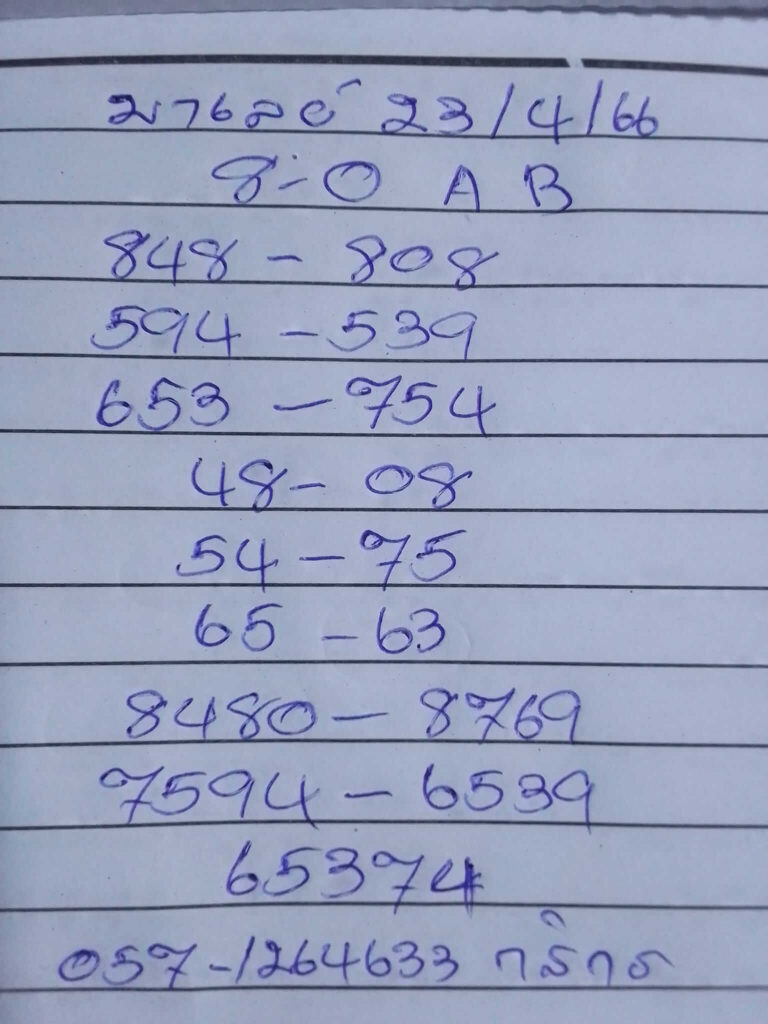 มาเลย์ 23/4/66
8-0 A B
848 - 808
594 - 539
653 - 754
48 - 08
54 - 75
65 - 63
8480 - 8769
7594 - 6539
65374
057-1264633 กสิกร